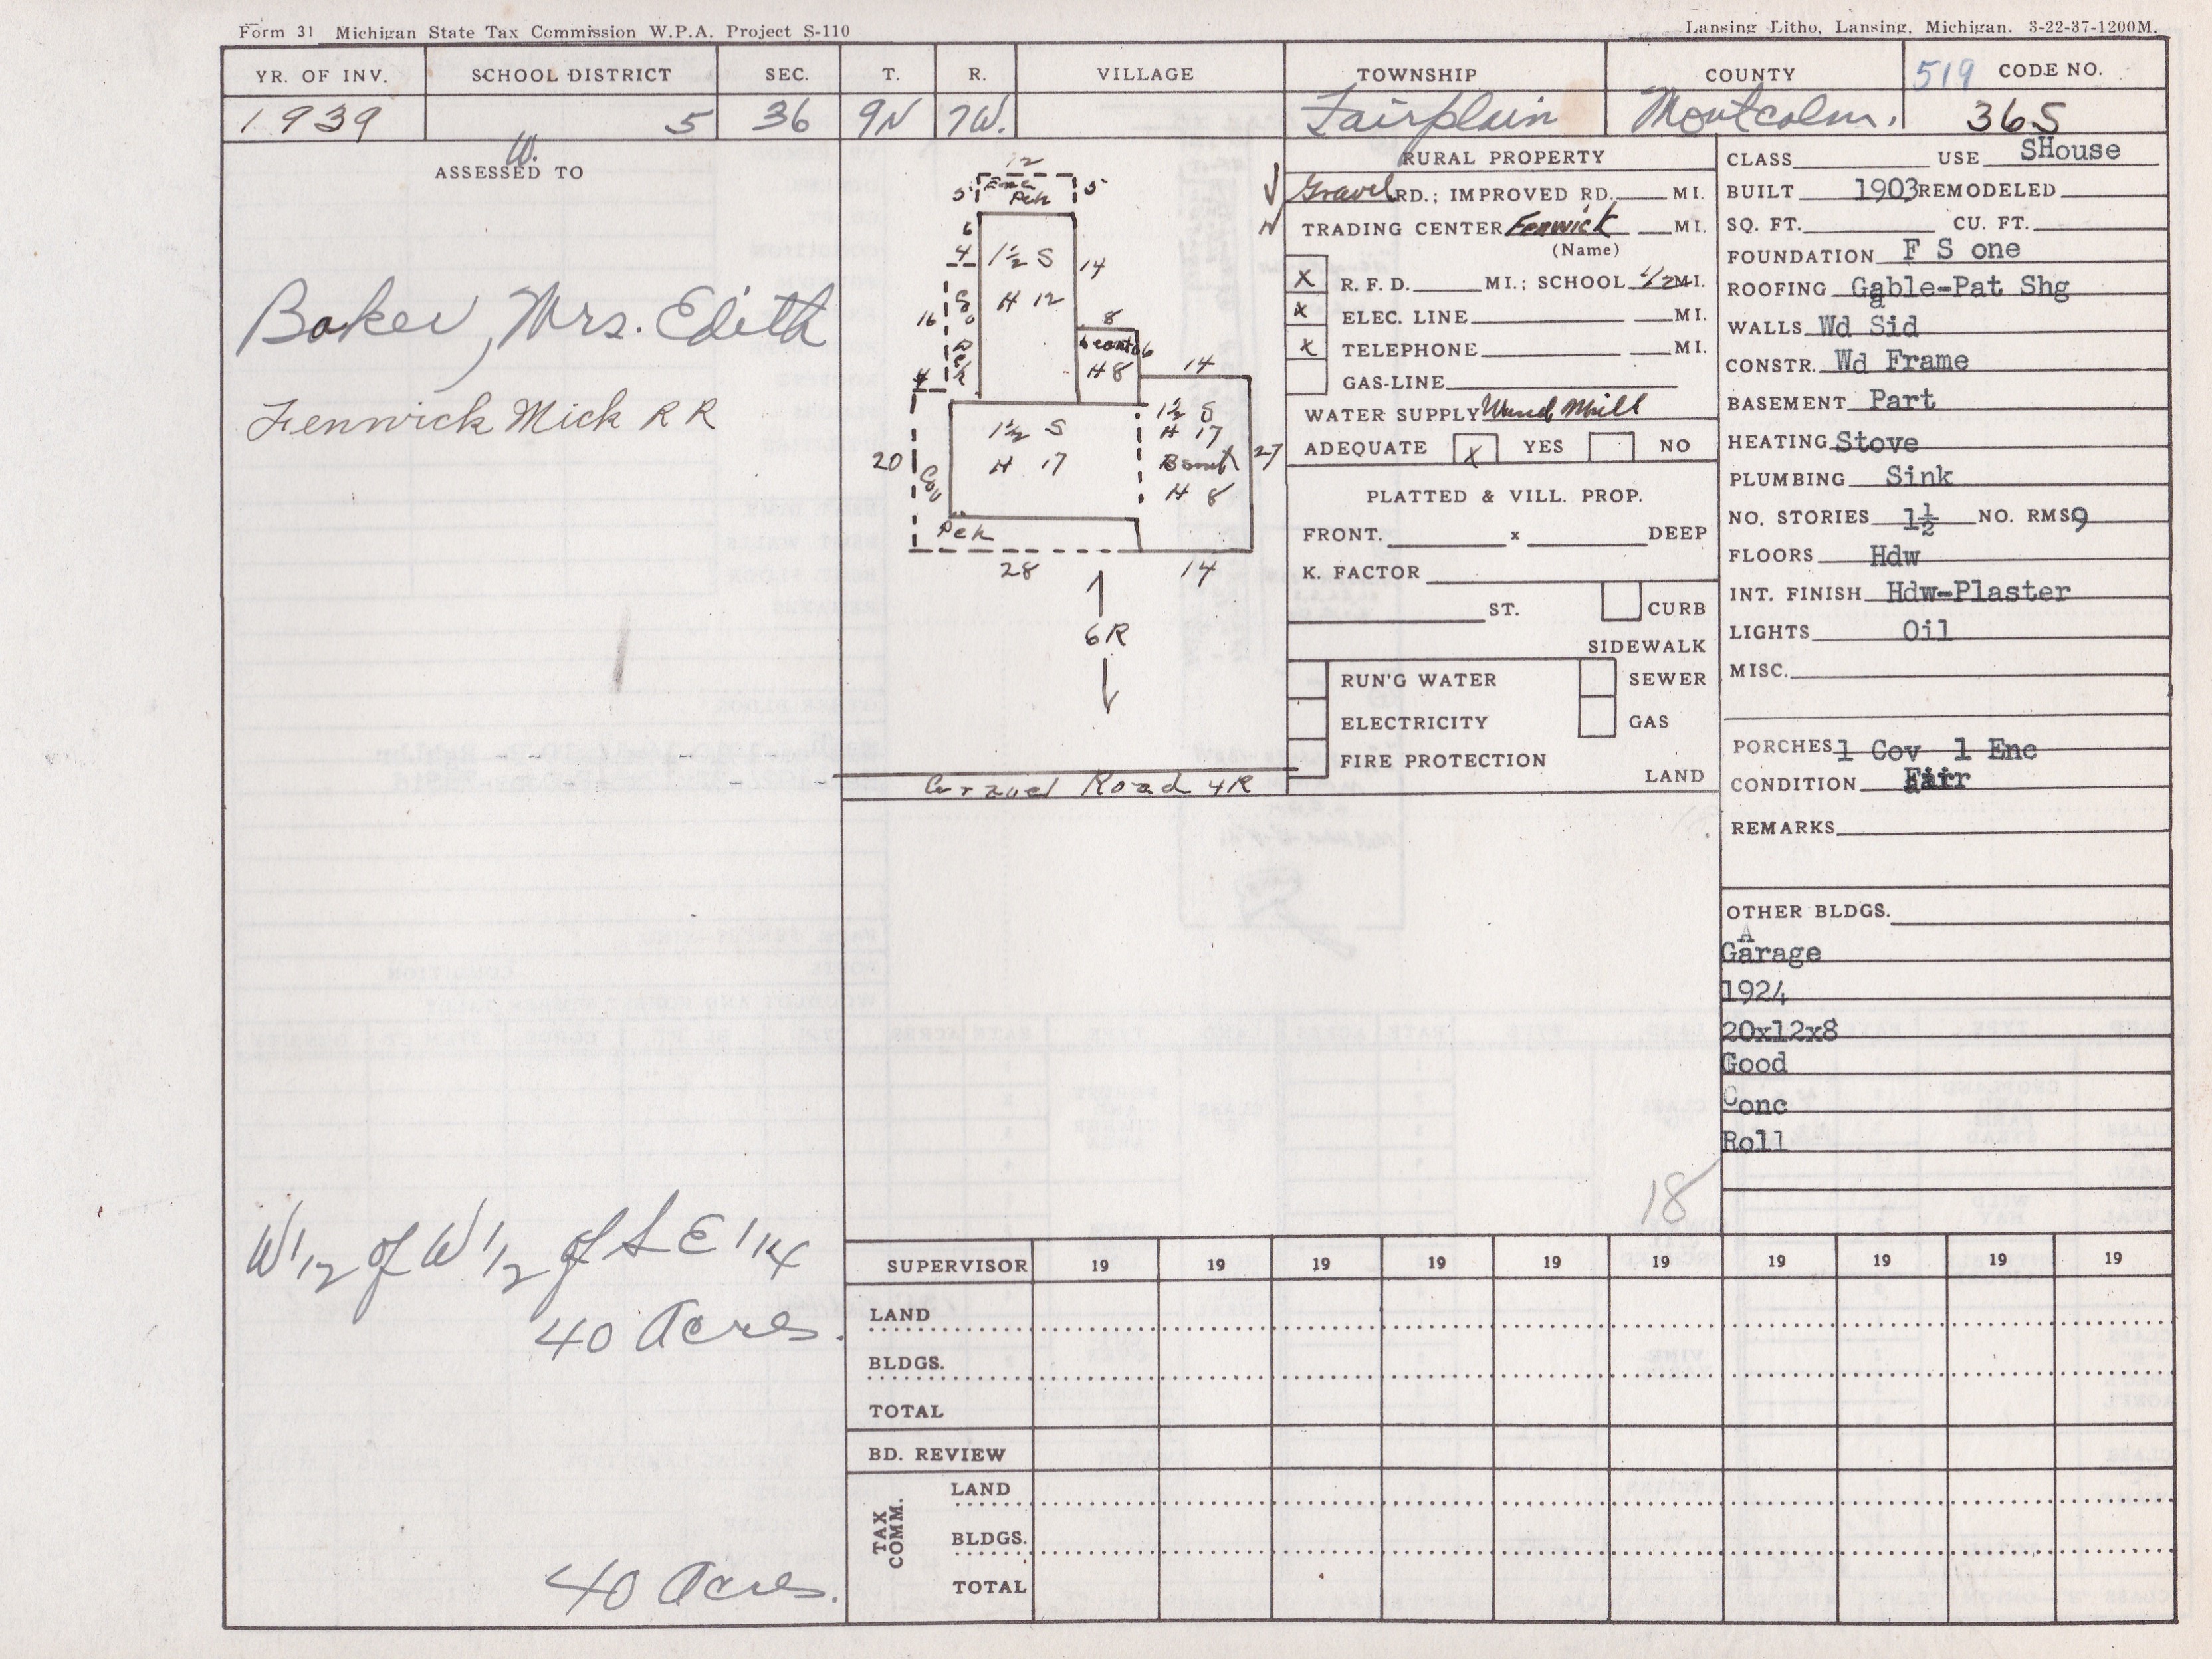 Form 31 Michigan State Tax Commission W.P.A. Project S-110
Lansing Litho, Lansing, Michigan. 3-22-37-1200M.
YR. OF INV. SCHOOL DISTRICT SEC. T. R. VILLAGE TOWNSHIP COUNTY 519 CODE NO.
1939 5 36 9N 7W. Fairplain Montcalm. 36S
W.
ASSESSED TO
Baker, Mrs. Edith
Fenwick Mich R R
W 1/2 of W 1/2 of S E 1/4
40 Acres.
40 Acres.
12
5 Enc 5
Pch
6
4 1½ S 14
H 12
16
8
6 6
H 8
4 14
1½ S 1½ S
H 17 H 17
20 Cov Bsmt 27
H 8
Pch
28 14
6R
Gravel Road 4R
RURAL PROPERTY
Gravel RD.; IMPROVED RD. MI.
TRADING CENTER Fenwick MI.
(Name)
X R. F. D. MI.; SCHOOL 1/2 MI.
X ELEC. LINE MI.
X TELEPHONE MI.
GAS-LINE
WATER SUPPLY Wind Mill
ADEQUATE X YES NO
PLATTED & VILL. PROP.
FRONT. x DEEP
K. FACTOR
ST. CURB
SIDEWALK
RUN'G WATER SEWER
ELECTRICITY GAS
FIRE PROTECTION
LAND
18
CLASS USE SHouse
BUILT 1903 REMODELED
SQ. FT. CU. FT.
FOUNDATION F S one
ROOFING Gable-Pat Shg
WALLS Wd Sid
CONSTR. Wd Frame
BASEMENT Part
HEATING Stove
PLUMBING Sink
NO. STORIES 1½ NO. RMS 9
FLOORS Hdw
INT. FINISH Hdw-Plaster
LIGHTS Oil
MISC.
PORCHES 1 Cov 1 Enc
CONDITION Fair
REMARKS
OTHER BLDGS.
A
Garage
1924
20x12x8
Good
Conc
Roll
SUPERVISOR 19 19 19 19 19 19 19 19 19 19
LAND
BLDGS.
TOTAL
BD. REVIEW
TAX COMM.
LAND
BLDGS.
TOTAL